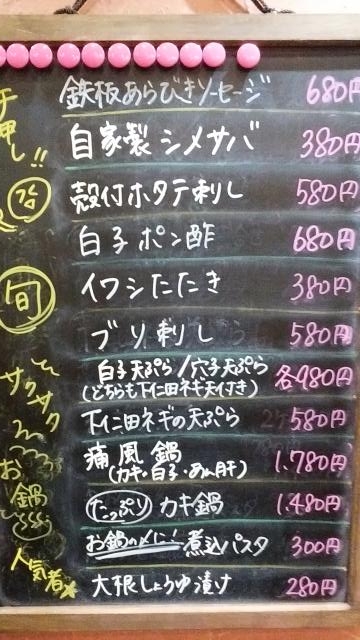 鉄板あらびきソーセージ 680円
自家製シメサバ 380円
殻付ホタテ刺し 580円
白子ポン酢 680円
イワシたたき 380円
ブリ刺し 580円
白子天ぷら/穴子天ぷら 各980円
(どちらも下仁田ネギ天付き)
下仁田ネギの天ぷら 580円
痛風鍋 1.780円
(カキ・白子・あん肝)
たっぷりカキ鍋 1.480円
お鍋の〆に!煮込パスタ 300円
大根しょうゆ漬け 280円
押し!!
旬
サクサク
お鍋
人気者